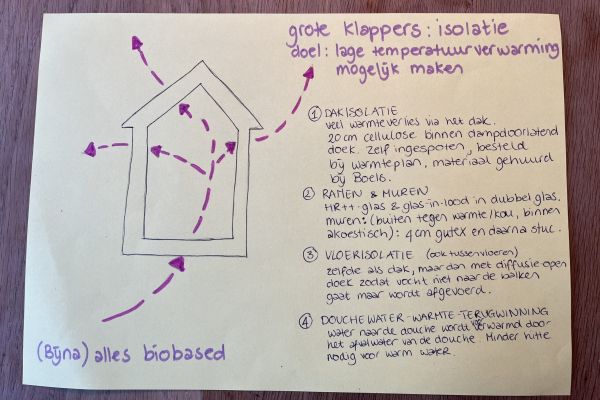 grote klappers: isolatie
doel: lage temperatuurverwarming
mogelijk maken
① DAKISOLATIE
veel warmteverlies via het dak.
20 cm cellulose binnen dampdoorlatend
doek. Zelf ingespoten, besteld
bij warmteplan, materiaal gehuurd
bij Boels.
② RAMEN & MUREN
HR++-glas & glas-in-lood in dubbel glas.
muren: (buiten tegen warmte/kou, binnen
akoestisch): 4cm gutex en daarna stuc.
③ VLOERISOLATIE (ook tussenvloeren)
zelfde als dak, maar dan met diffusie-open
doek zodat vocht niet naar de balken
gaat maar wordt afgevoerd.
④ DOUCHEWATER-WARMTE-TERUGWINNING
water naar de douche wordt verwarmd door
het afvalwater van de douche. Minder hitte
nodig voor warm water.
(Bijna) alles biobased